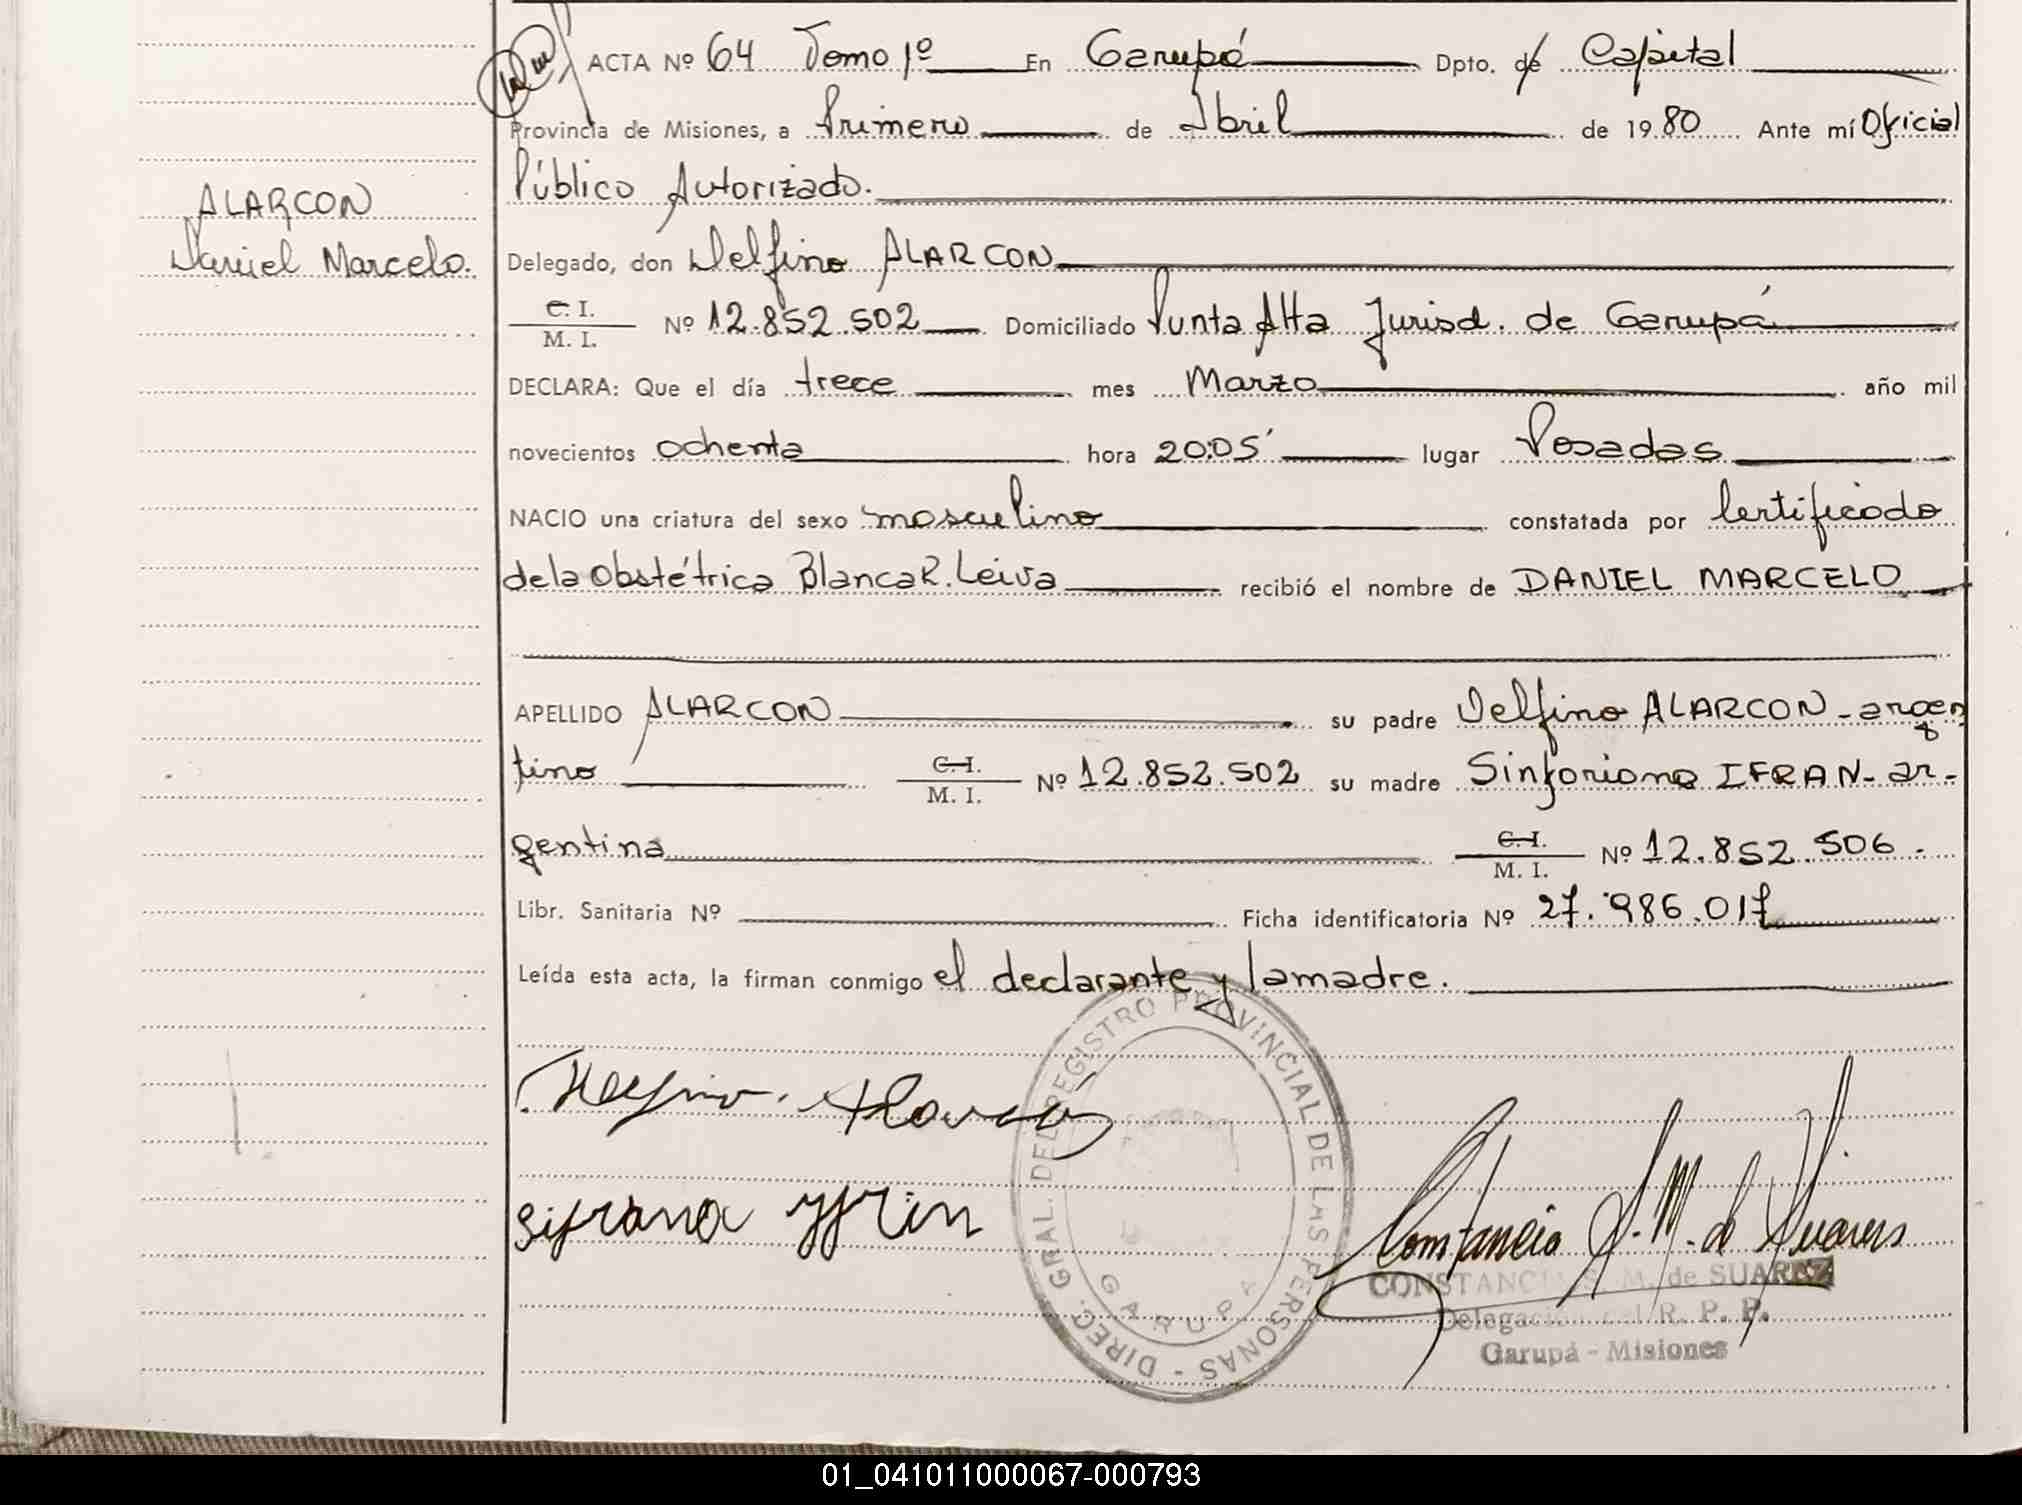 ACTA Nº 64 Tomo 1º En Garupá Dpto. de Capital
Provincia de Misiones, a Primero de Abril de 1980 Ante mí Oficial
Público Autorizado.
ALARCON
Daniel Marcelo.
Delegado, don Delfino ALARCON
C. I.
M. I.
Nº 12.852.502 Domiciliado Punta Alta Jurisd. de Garupá
DECLARA: Que el día trece mes Marzo año mil
novecientos ochenta hora 20:05' lugar Posadas
NACIO una criatura del sexo masculino constatada por Certificado
de la Obstétrica Blanca R. Leiva recibió el nombre de DANIEL MARCELO
APELLIDO ALARCON su padre Delfino ALARCON - argen
tino C. I. M. I. Nº 12.852.502 su madre Sinforiana IFRAN - ar-
gentina C. I. M. I. Nº 12.852.506.
Libr. Sanitaria Nº Ficha identificatoria Nº 27.986.017
Leída esta acta, la firman conmigo el declarante y la madre.
DIREC. GRAL. DEL REGISTRO PROVINCIAL DE LAS PERSONAS -
GARUPA
Delfino Alarcón
Constancia S. M. de Suarez
CONSTANCIA S. M. de SUAREZ
Delegación del R. P. P.
Garupá - Misiones
01_041011000067-000793